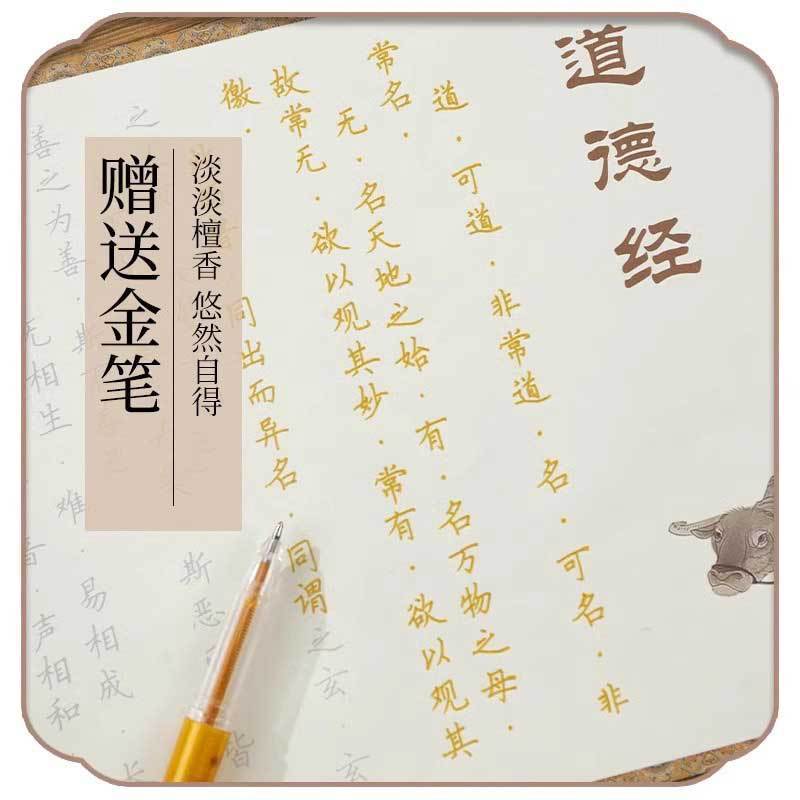 道德经
道·可道·非常道·名·可名·非
常名·
无·名天地之始·有·名万物之母·
故常无·欲以观其妙·常有·欲以观其
徼·
同出而异名·同谓之玄·玄
之
斯恶
皆
善之为善·斯
无相生·难易相成·长
音·声相和·
淡淡檀香 悠然自得
赠送金笔